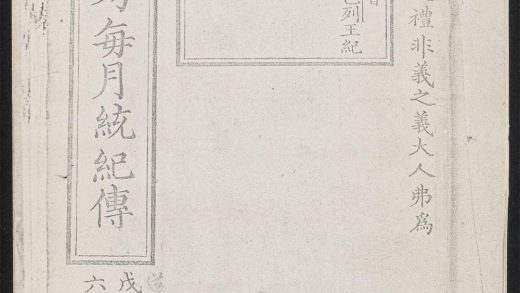 禮非義之義大人弗爲
色列王紀
每月統紀傳
道
戊
六